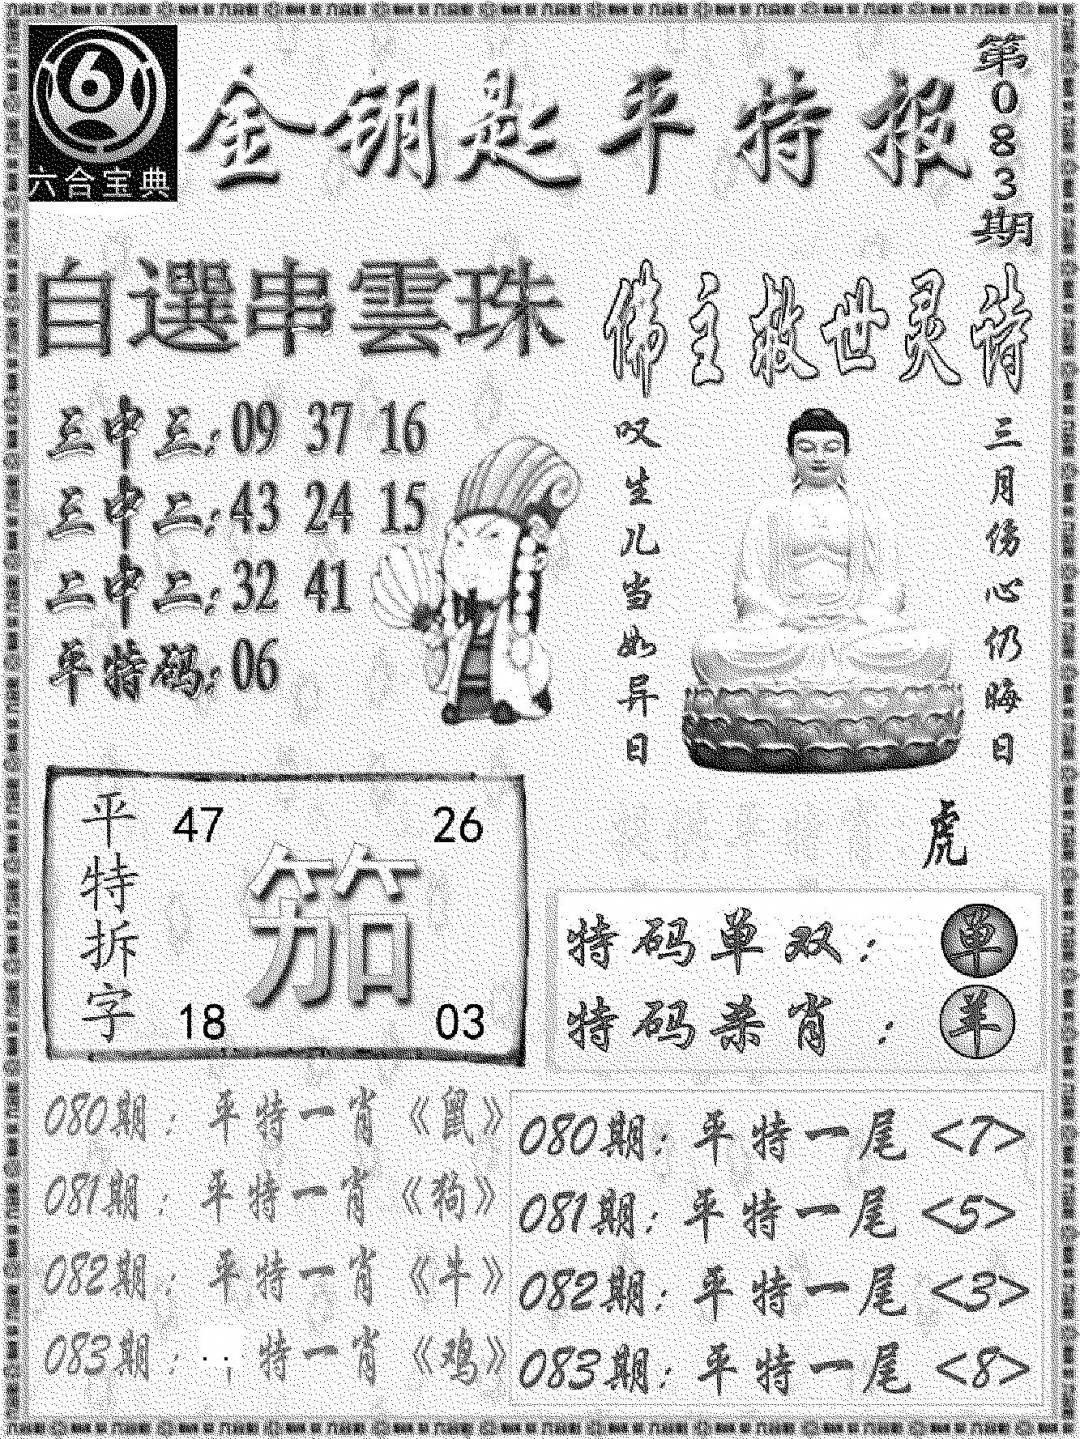 6
六合宝典
金钥匙平特报
第083期
自選串雲珠
三中三: 09 37 16
三中二: 43 24 15
二中二: 32 41
平特码: 06
佛主救世灵诗
三月伤心仍晦日
叹生儿当如异日
虎
平特拆字
47 26
笳
18 03
特码单双: 单
特码杀肖: 羊
080期: 平特一肖《鼠》
081期: 平特一肖《狗》
082期: 平特一肖《牛》
083期: 特一肖《鸡》
080期: 平特一尾<7>
081期: 平特一尾<5>
082期: 平特一尾<3>
083期: 平特一尾<8>